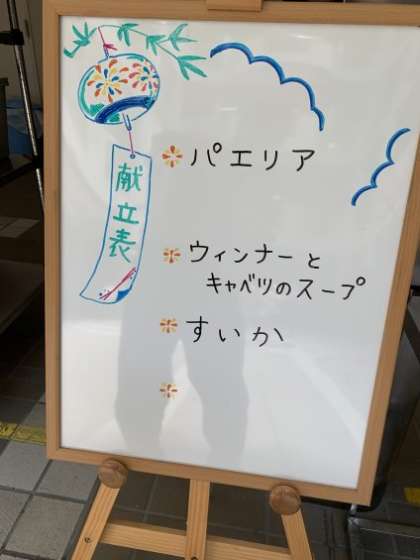 献立表
パエリア
ウィンナーと
キャベツのスープ
すいか